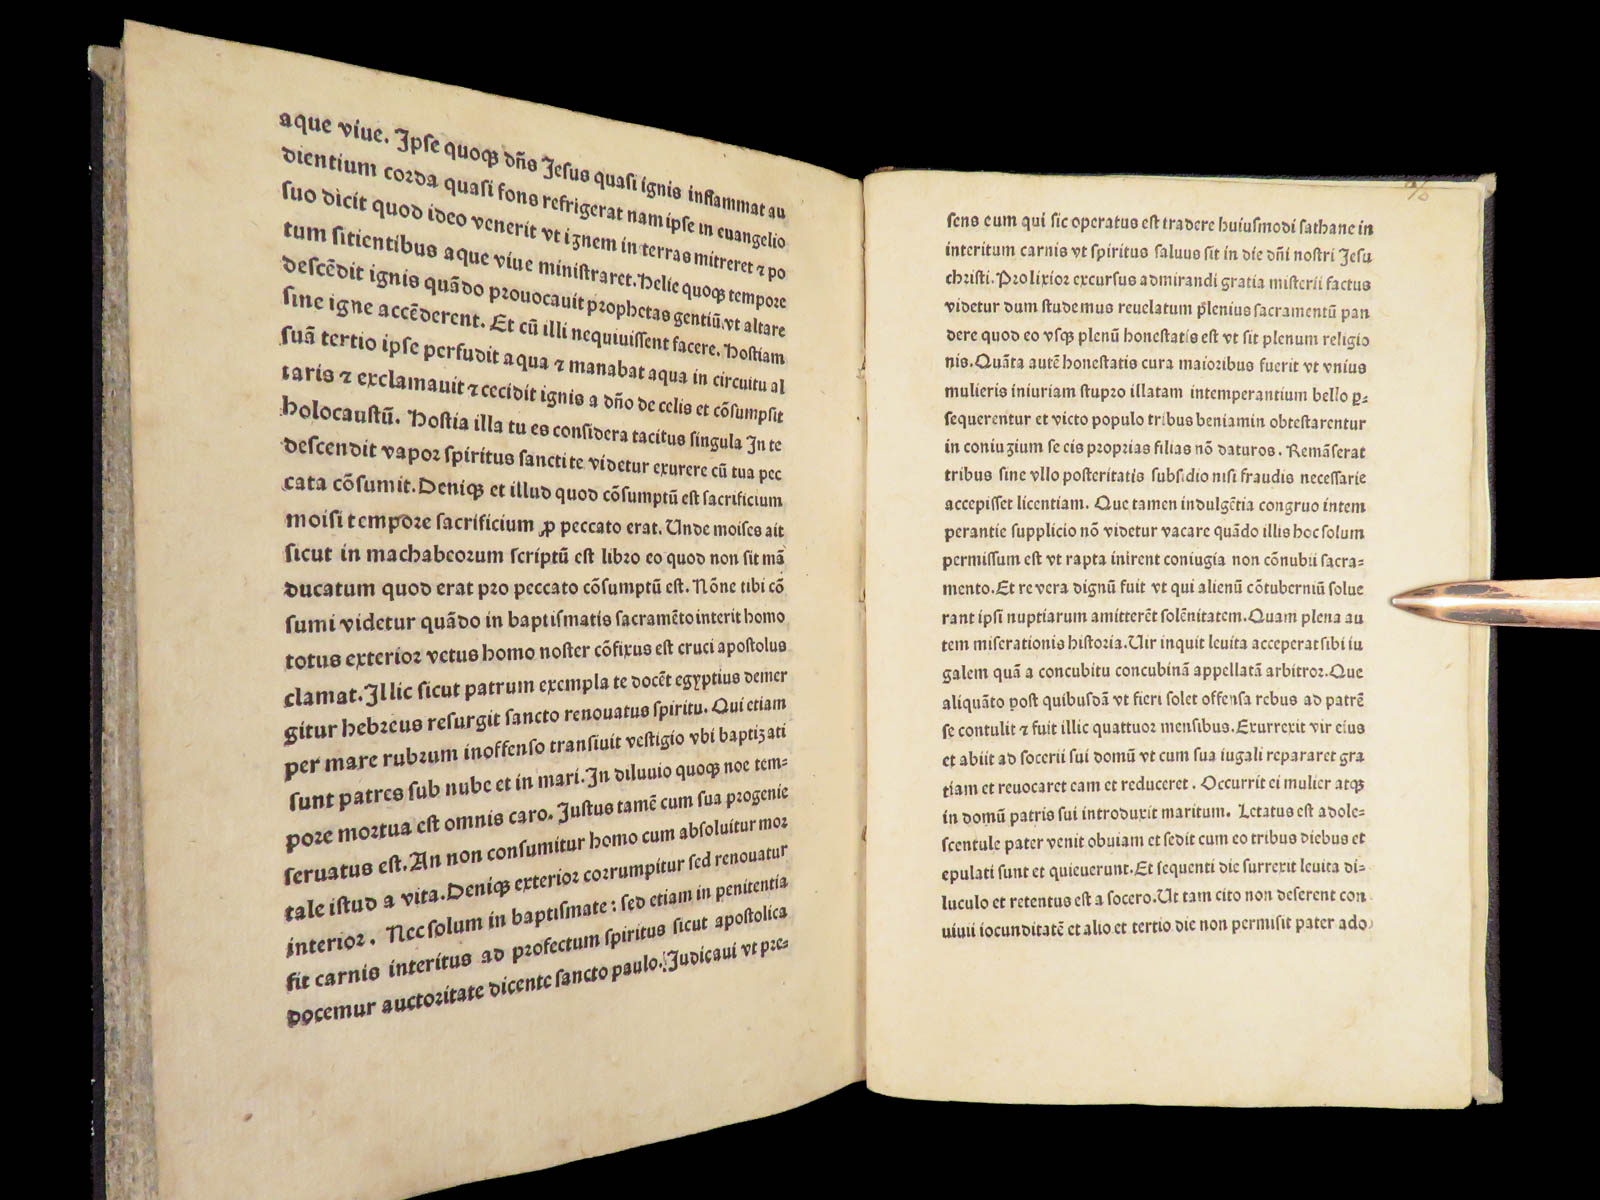 aque viue. Ipſe quoqꝫ dn̄s Jeſus quaſi ignis inflammat au
dientium corda quaſi fons refrigerat nam ipſe in euangelio
ſuo dicit quod ideo venerit vt ignem in terras mitteret ⁊ po
tum ſitientibus aque viue miniſtraret. Helie quoqꝫ tempore
deſcēdit ignis quādo prouocauit prophetas gentiū. vt altare
ſine igne accēderent. Et cū illi nequiuiſſent facere. hoſtiam
ſuā tertio ipſe perfudit aqua ⁊ manabat aqua in circuitu al
taris ⁊ exclamauit ⁊ cecidit ignis a dn̄o de celis et cōſumpſit
holocauſtū. Hoſtia illa tu es conſidera tacitus ſingula In te
deſcendit vapor ſpiritus ſancti te videtur exurere cū tua pec
cata cōſumit. Deniqꝫ et illud quod cōſumptū eſt ſacrificium
moiſi tempore ſacrificium ꝓ peccato erat. Unde moiſes ait
ſicut in machabeorum ſcriptū eſt libro eo quod non ſit mā
ducatum quod erat pro peccato cōſumptū eſt. Nōne tibi cō
ſumi videtur quādo in baptiſmatis ſacramēto interit homo
totus exterior vetus homo noſter cōfixus eſt cruci apoſtolus
clamat. Illic ſicut patrum exempla te docēt egyptius demer
gitur hebreus reſurgit ſancto renouatus ſpiritu. Qui etiam
per mare rubrum inoffenſo tranſiuit veſtigio vbi baptiȝati
ſunt patres ſub nube et in mari. In diluuio quoqꝫ noe tem⸗
pore mortua eſt omnis caro. Juſtus tamē cum ſua progenie
ſeruatus eſt. An non conſumitur homo cum abſoluitur mor
tale iſtud a vita. Deniqꝫ exterior corrumpitur ſed renouatur
interior. Nec ſolum in baptiſmate: ſed etiam in penitentia
fit carnis interitus ad profectum ſpiritus ſicut apoſtolica
docemur auctoritate dicente ſancto paulo. Judicaui vt pre⸗
ſens eum qui ſic operatus eſt tradere huiuſmodi ſathane in
interitum carnis vt ſpiritus ſaluus ſit in die dn̄i noſtri Jeſu
chriſti. Prolixior excurſus admirandi gratia miſterii factus
videtur dum ſtudemus reuelatum plenius ſacramentū pan
dere quod eo vſqꝫ plenū honeſtatis eſt vt ſit plenum religio
nis. Quāta autē honeſtatis cura maioribus fuerit vt vnius
mulieris iniuriam ſtupro illatam intemperantium bello ꝑ⸗
ſequerentur et victo populo tribus beniamin obteſtarentur
in coniugium ſe eis proprias filias nō daturos. Remāſerat
tribus ſine vllo poſteritatis ſubſidio niſi fraudis neceſſarie
accepiſſet licentiam. Que tamen indulgētia congruo intem
perantie ſupplicio nō videtur vacare quādo illis hoc ſolum
permiſſum eſt vt rapta inirent coniugia non cōnubii ſacra⸗
mento. Et re vera dignū fuit vt qui alienū cōtuberniū ſolue
rant ipſi nuptiarum amitterēt ſolēnitatem. Quam plena au
tem miſerationis hiſtoria. Uir inquit leuita acceperat ſibi iu
galem quā a concubitu concubinā appellatā arbitror. Que
aliquāto poſt quibuſdā vt fieri ſolet offenſa rebus ad patrē
ſe contulit ⁊ fuit illic quattuor menſibus. Exurrexit vir eius
et abiit ad ſocerii ſui domū vt cum ſua iugali repararet gra
tiam et reuocaret eam et reduceret. Occurrit ei mulier atqꝫ
in domū patris ſui introduxit maritum. Letatus eſt adole⸗
ſcentule pater venit obuiam et ſedit cum eo tribus diebus et
epulati ſunt et quieuerunt. Et ſequenti die ſurrexit leuita di⸗
luculo et retentus eſt a ſocero. Ut tam cito non deſerent con
uiuii iocunditatē et alio et tertio die non permiſit pater ado